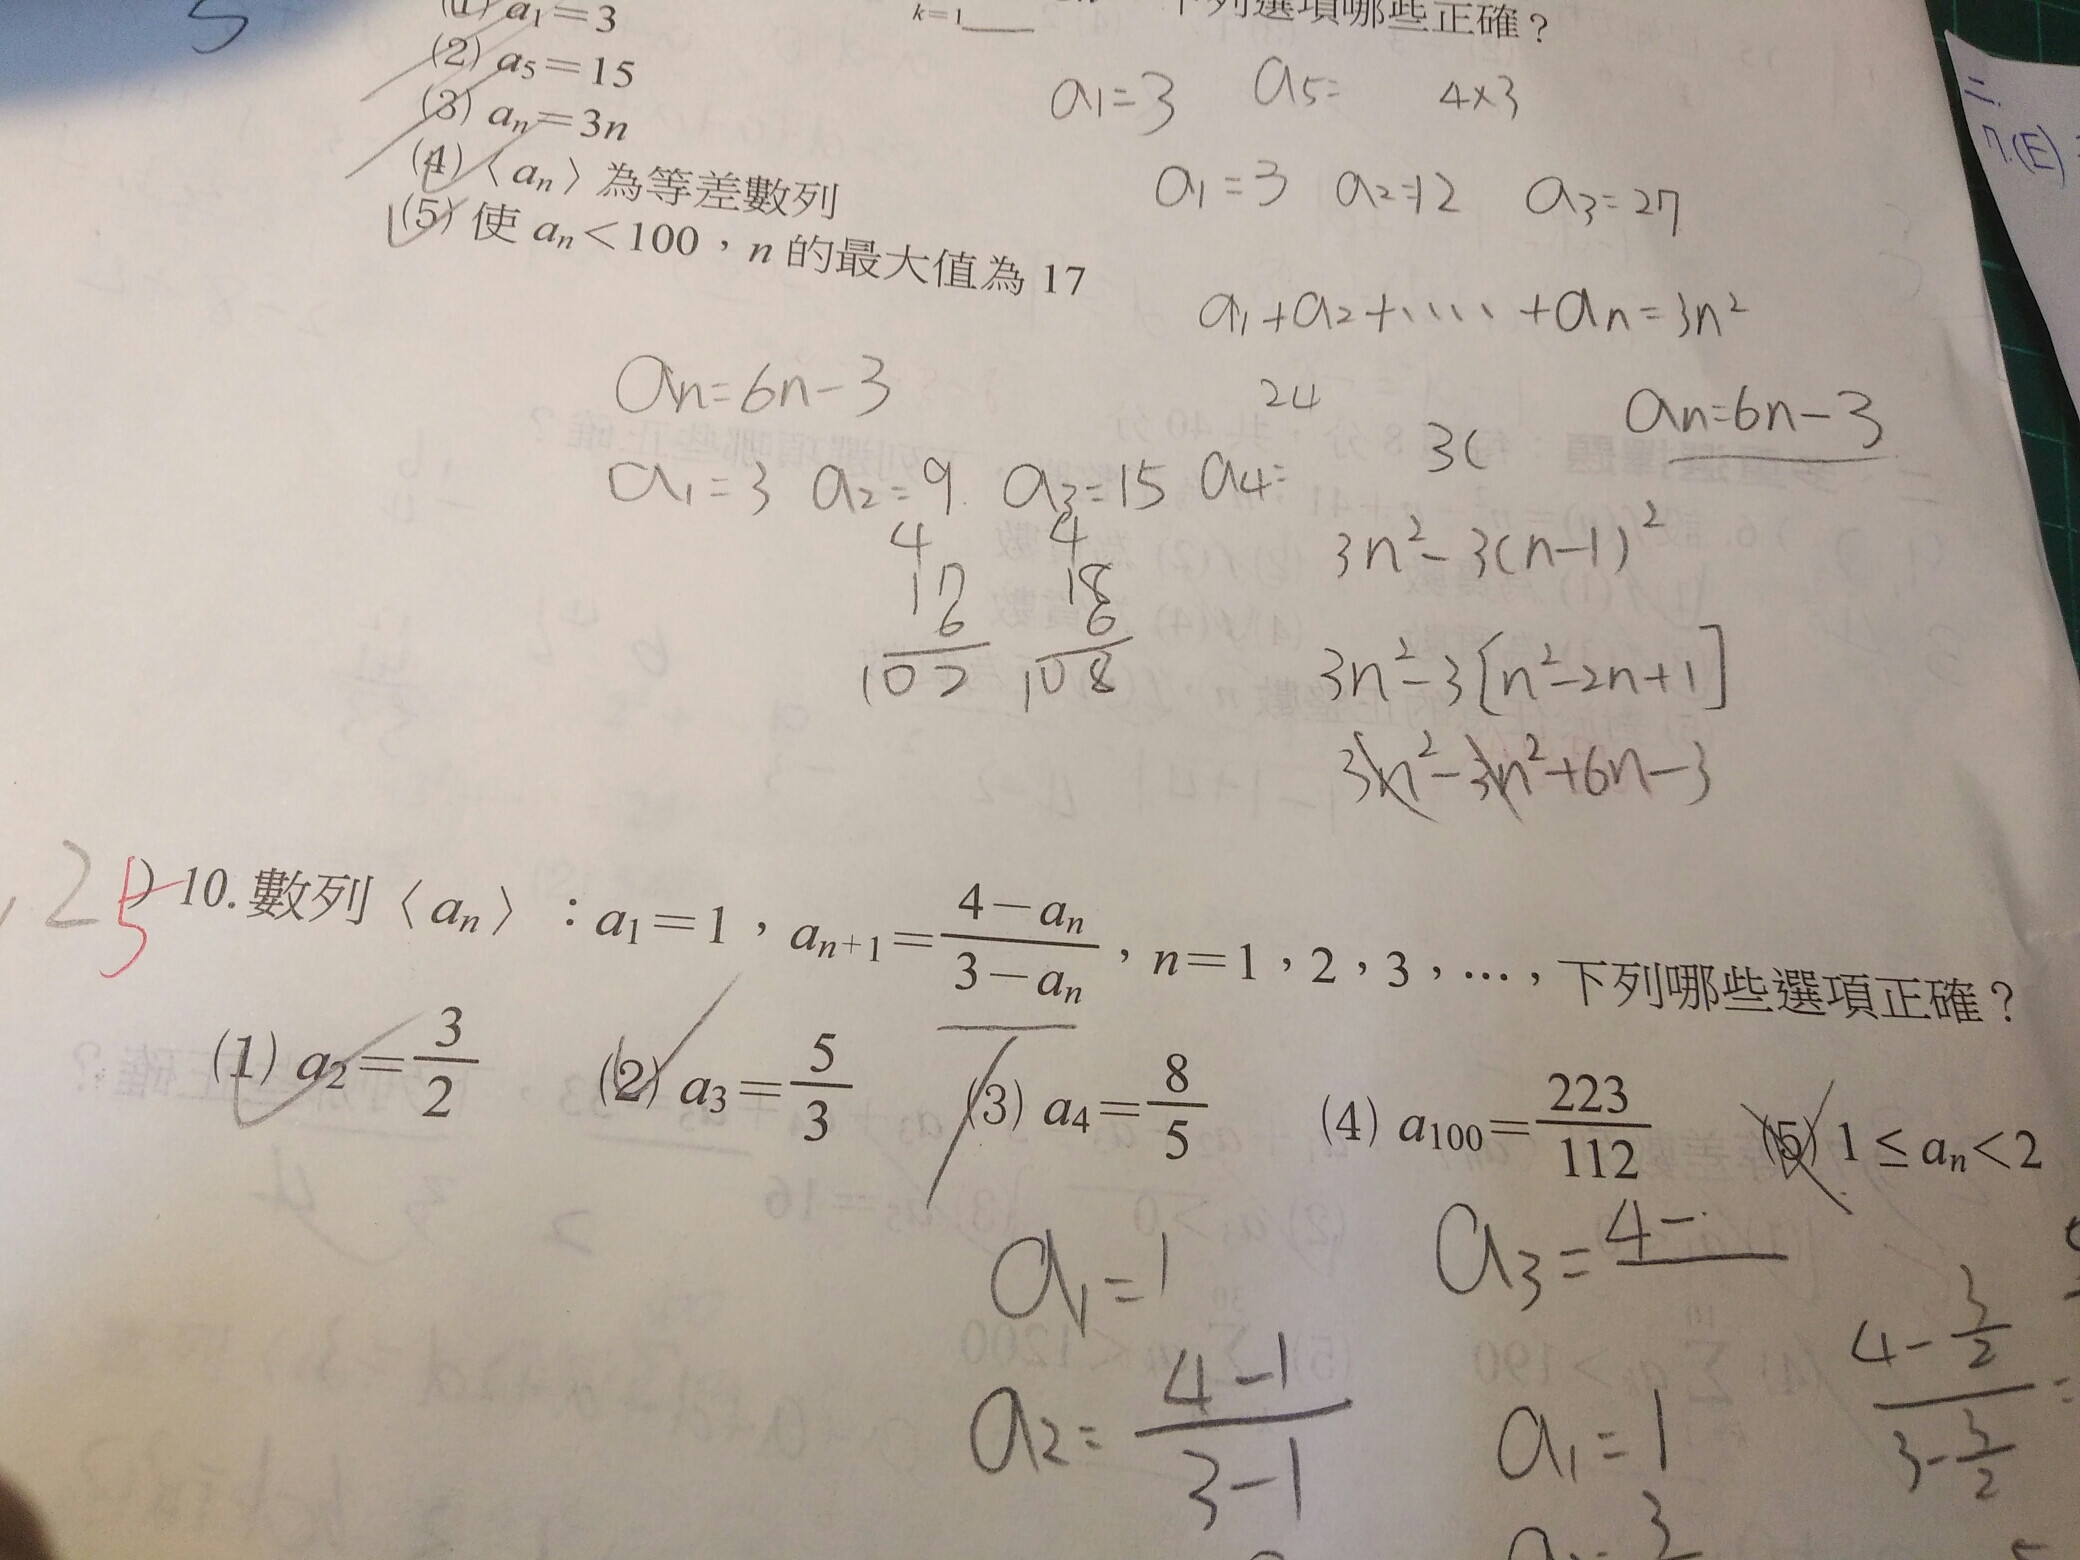 (1) a₁=3
k=1 下列選項哪些正確？
(2) a₅=15
(3) aₙ=3n
(4)〈aₙ〉為等差數列
(5) 使 aₙ<100，n 的最大值為 17
a₁=3 a₅= 4×3
a₁=3 a₂=12 a₃=27
a₁+a₂+.....+aₙ=3n²
aₙ=6n-3
24
3(
aₙ=6n-3
a₁=3 a₂=9 a₃=15 a₄=
4 4
17 18
6 6
102 108
3n²-3(n-1)²
3n²-3[n²-2n+1]
3n²-3n²+6n-3
二.
7.(E)
25
) 10. 數列〈aₙ〉：a₁=1，aₙ₊₁=(4-aₙ)/(3-aₙ)，n=1，2，3，…，下列哪些選項正確？
(1) a₂=3/2 (2) a₃=5/3 (3) a₄=8/5 (4) a₁₀₀=223/112 (5) 1≤aₙ<2
a₁=1
a₂=(4-1)/(3-1)
a₃=4-
(4-3/2)/(3-3/2)=
a₁=1